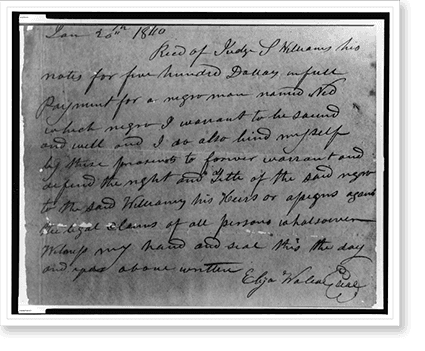 Jan 20th 1840
Recd of Judge S Williams his
notes for five hundred Dollars in full
Payment for a negro man named Ned
which negro I warrant to be sound
and well and I do also bind myself
by these presents to forever warrant and
defend the right and Title of the said negro
to the said Williams his Heirs or assigns against
the legal Claims of all persons whatsoever
Witness my hand and seal this the day
and year above written
Eliza Wallace seal